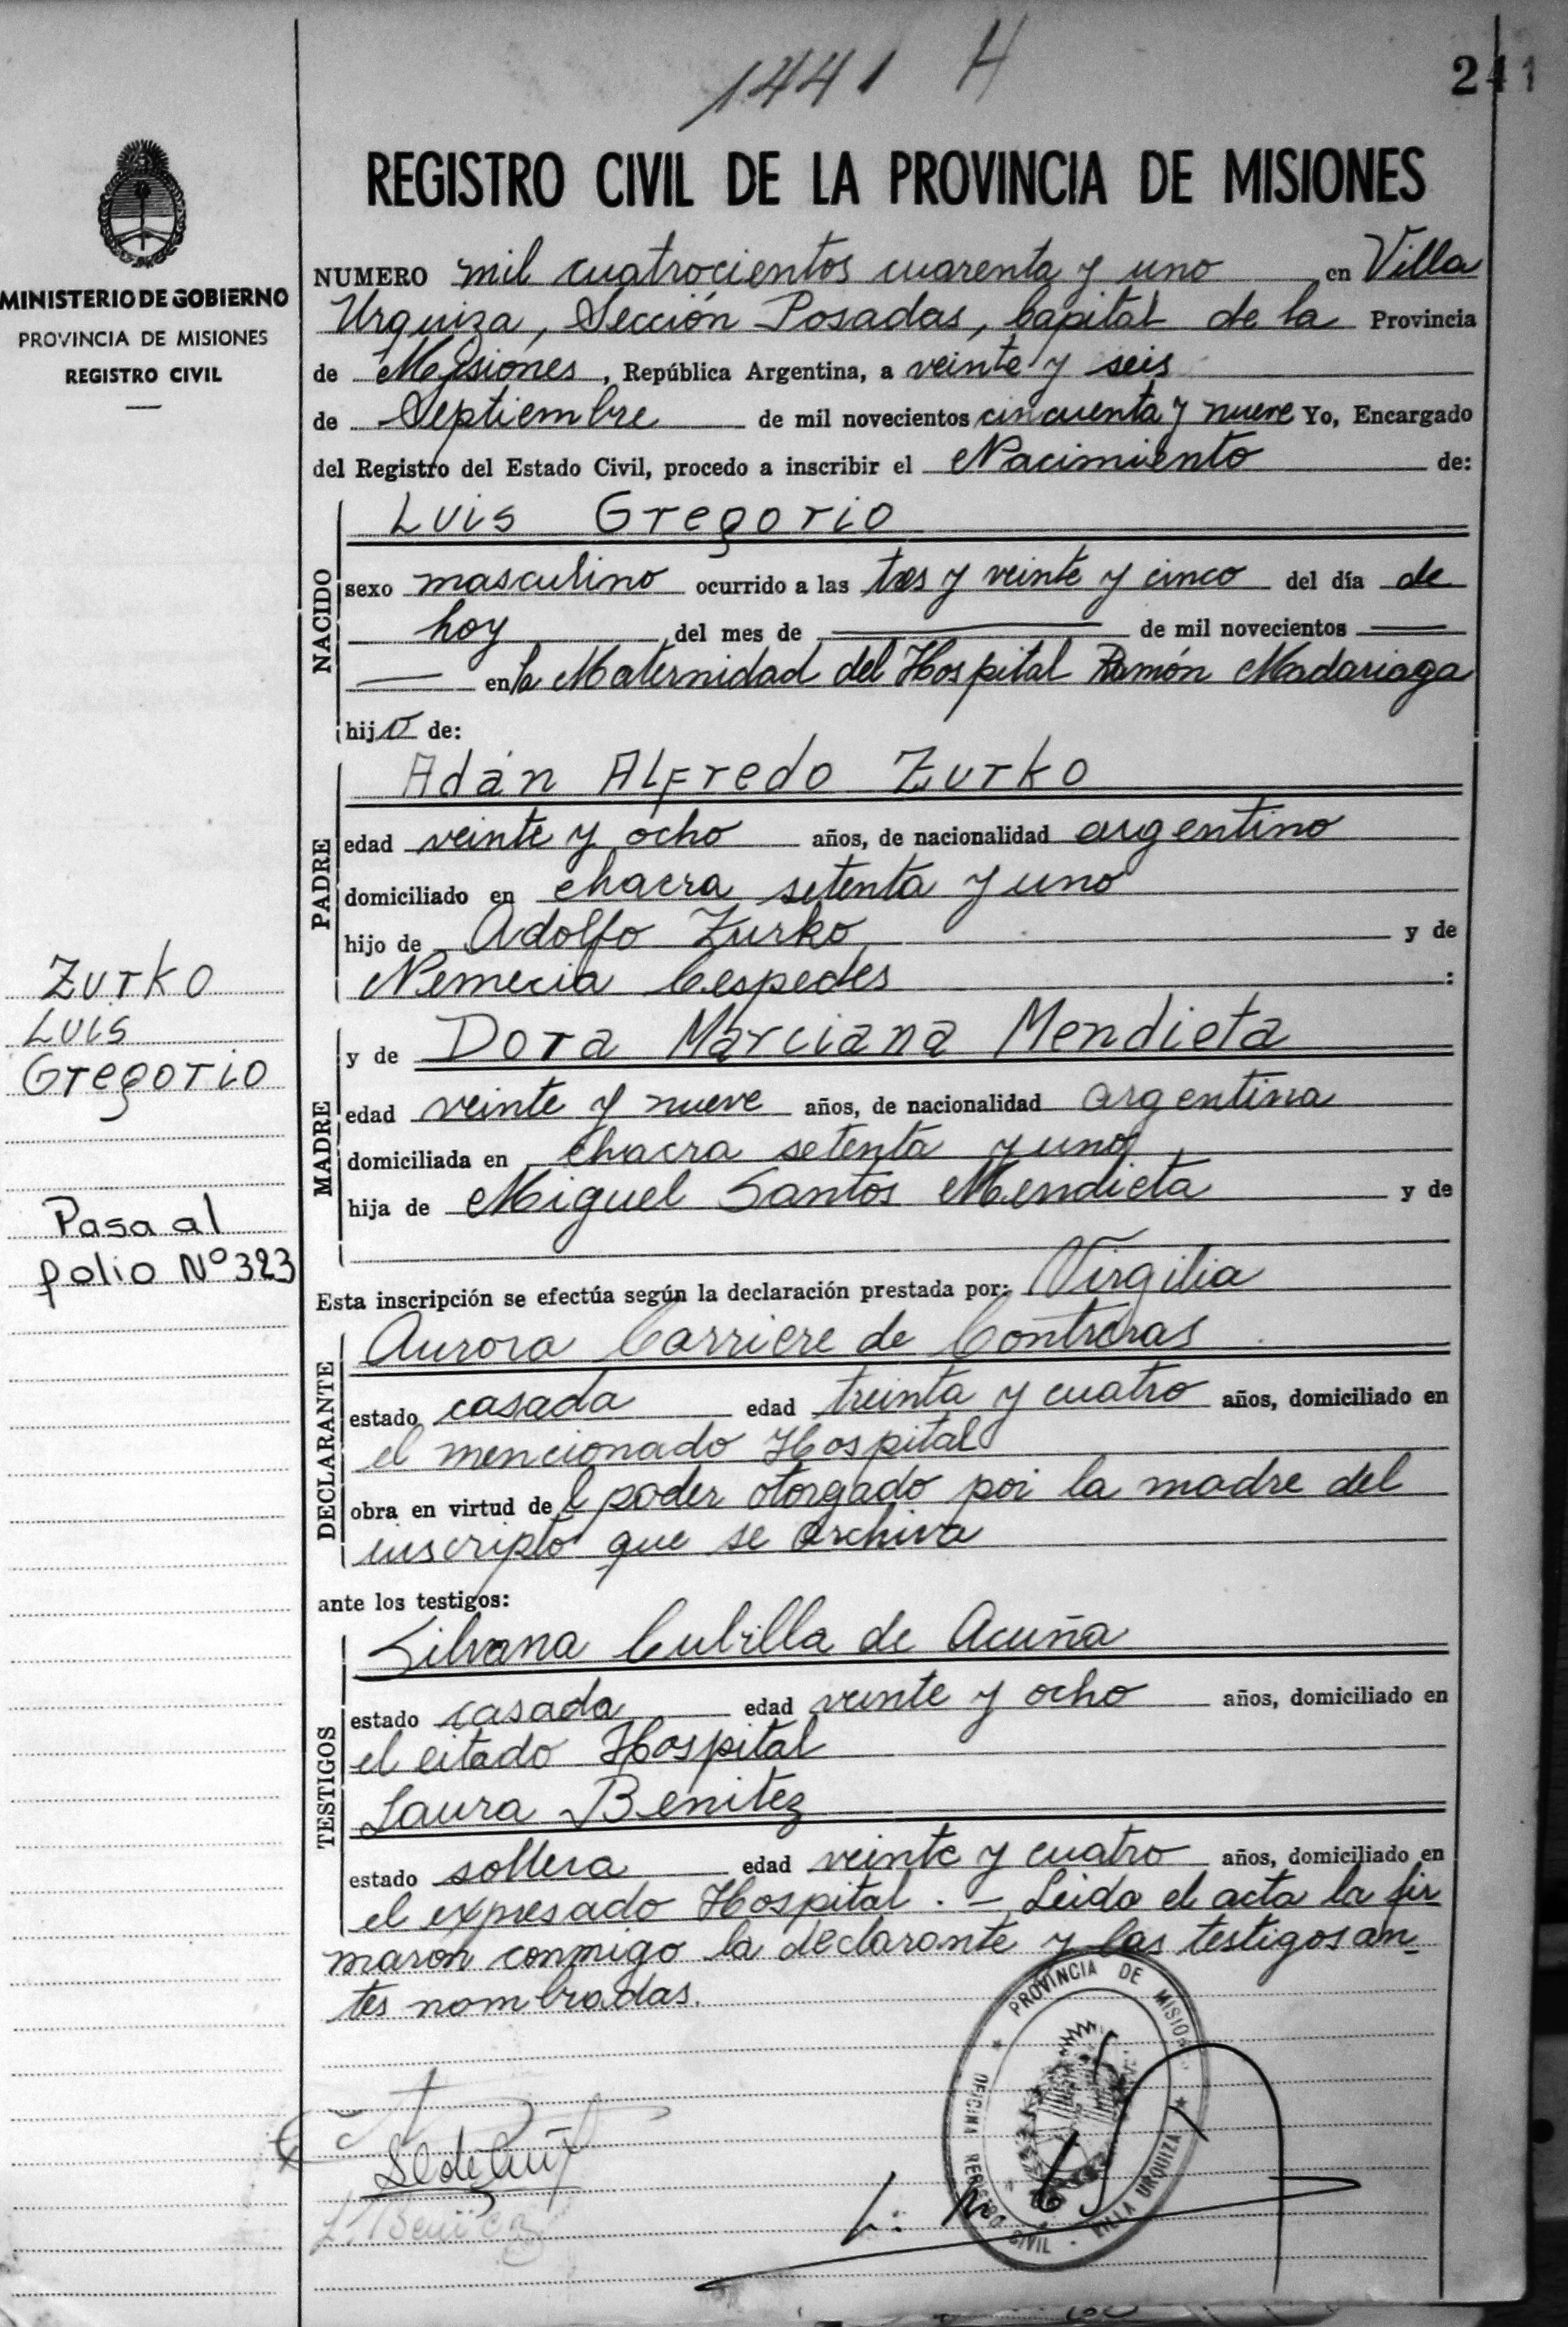 1441 H
241
REGISTRO CIVIL DE LA PROVINCIA DE MISIONES
MINISTERIO DE GOBIERNO
PROVINCIA DE MISIONES
REGISTRO CIVIL
NUMERO mil cuatrocientos cuarenta y uno en Villa
Urquiza, Sección Posadas, Capital de la Provincia
de Misiones, República Argentina, a veinte y seis
de Septiembre de mil novecientos cincuenta y nueve Yo, Encargado
del Registro del Estado Civil, procedo a inscribir el Nacimiento de:
NACIDO
Luis Gregorio
sexo masculino ocurrido a las tres y veinte y cinco del día de
hoy del mes de de mil novecientos
en la Maternidad del Hospital Ramón Madariaga
hijo de:
PADRE
Adán Alfredo Zurko
edad veinte y ocho años, de nacionalidad argentino
domiciliado en chacra setenta y uno
hijo de Adolfo Zurko y de
Nemecia Cespedes :
MADRE
y de Dora Marciana Mendieta
edad veinte y nueve años, de nacionalidad argentina
domiciliada en chacra setenta y uno
hija de Miguel Santos Mendieta y de
Zurko
Luis
Gregorio
Pasa al
folio Nº 323
Esta inscripción se efectúa según la declaración prestada por: Virgilia
DECLARANTE
Aurora Carriere de Contreras
estado casada edad treinta y cuatro años, domiciliado en
el mencionado Hospital
obra en virtud del poder otorgado por la madre del
inscripto que se archiva
ante los testigos:
TESTIGOS
Silvana Cubilla de Acuña
estado casada edad veinte y ocho años, domiciliado en
el citado Hospital
Laura Benitez
estado soltera edad veinte y cuatro años, domiciliado en
el expresado Hospital. - Leida el acta la fir
maron conmigo la declarante y las testigos an-
tes nombradas.
PROVINCIA DE MISIO
OFICINA REGISTRO CIVIL - VILLA URQUIZA
L. Benitez